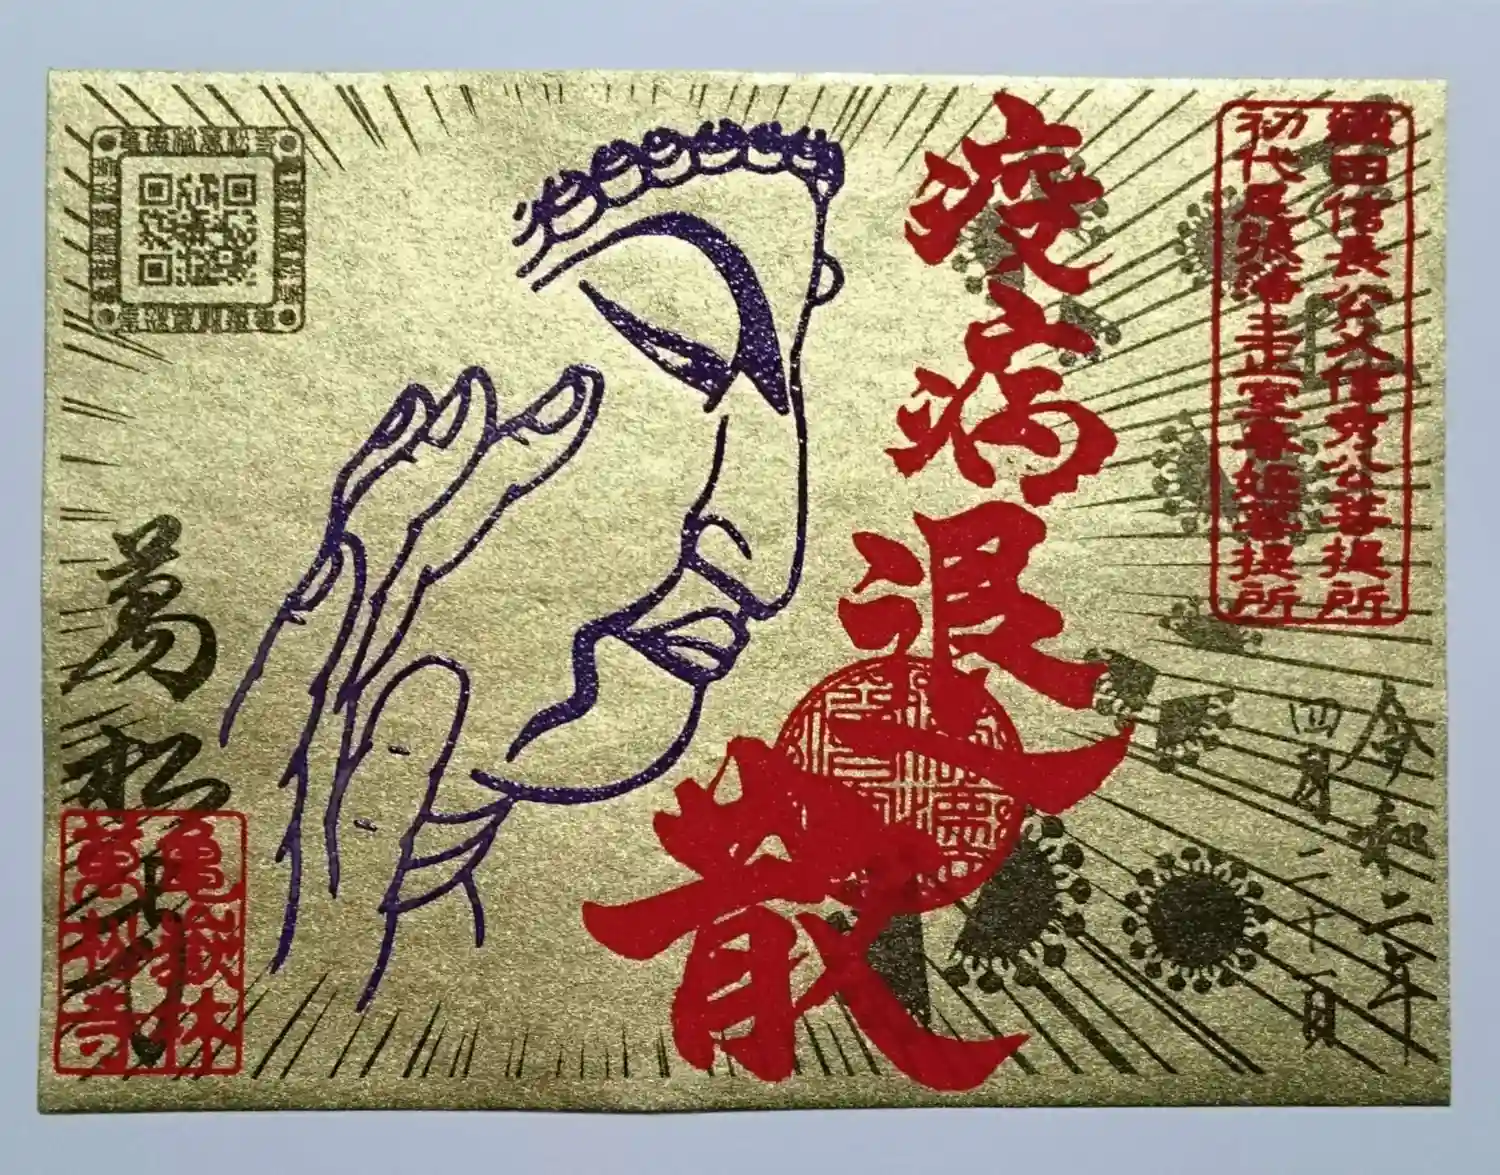 織田信長公父信秀公菩提所
初代尾張藩主正室春姫菩提所
令和二年
四月二十一日
疫病退散
萬松寺
亀嶽林
萬松寺